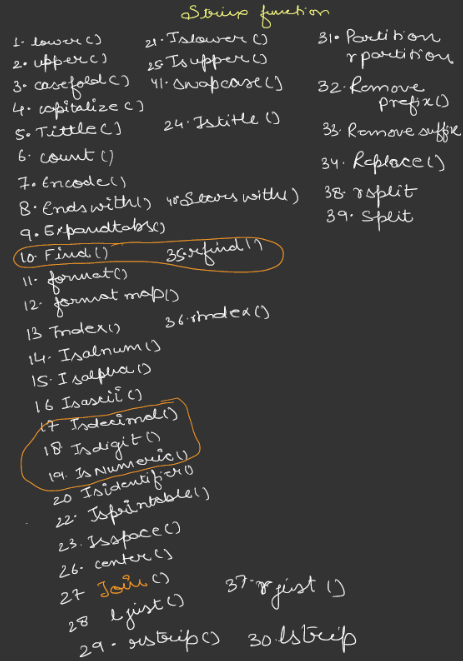 String function
1. lower()
2. upper()
3. casefold()
4. capitalize()
5. Tittle()
6. count()
7. Encode()
8. Endswith()
9. Expandtabs()
10. Find()
11. format()
12. format map()
13 Index()
14. Isalnum()
15. Isalpha()
16 Isascii()
17 Isdecimal()
18 Isdigit()
19. IsNumeric()
20 Isidentifier()
22. Isprintable()
23. Isspace()
26. center()
27 Join()
28 ljist()
29. rstrip()
21. Islower()
25 Isupper()
41. swapcase()
24. Istitle()
40 Starswith()
35. rfind()
36. rindex()
37. rjist()
30. lstrip
31. Partition
rpartition
32. Remove
prefix()
33. Remove suffix
34. Replace()
38. rsplit
39. Split